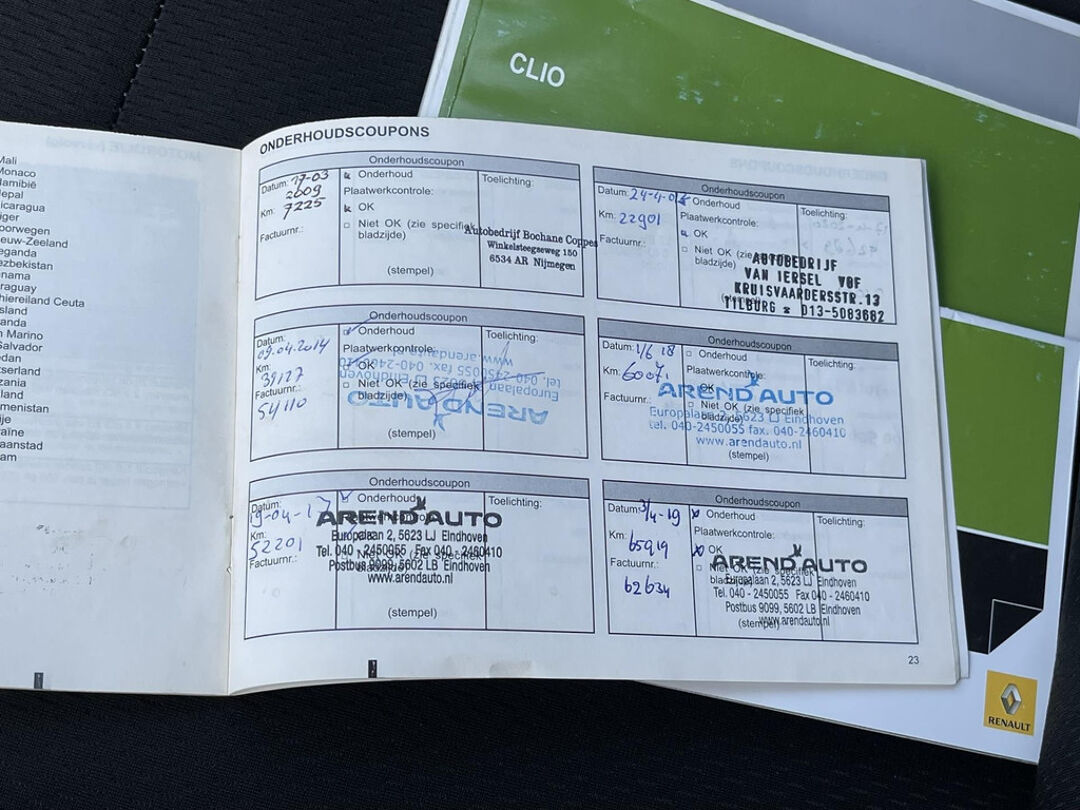 CLIO
Mali
Monaco
Namibië
Nepal
Nicaragua
Niger
Noorwegen
Nieuw-Zeeland
Oeganda
Oezbekistan
Panama
Paraguay
Schiereiland Ceuta
San Marino
El Salvador
Zwitserland
ONDERHOUDSCOUPONS
Onderhoudscoupon
Datum: 17-03
2009
Km: 7225
Factuurnr.:
Onderhoud
Plaatwerkcontrole:
OK
Niet OK (zie specifiek
bladzijde)
(stempel)
Toelichting:
Autobedrijf Bochane Coppes
Winkelsteegseweg 150
6534 AR Nijmegen
Onderhoudscoupon
Datum: 24-4-0
Km: 22901
Factuurnr.:
Plaatwerkcontrole:
OK
Niet OK (zie
bladzijde)
Toelichting:
AUTOBEDRIJF
VAN IERSEL VOF
KRUISVAARDERSSTR.13
TILBURG ☎ 013-5083682
Onderhoudscoupon
Datum:
09.04.2014
Km:
39127
Factuurnr.:
54110
Onderhoud
Plaatwerkcontrole:
OK
Niet OK (zie specifiek
bladzijde)
(stempel)
Toelichting:
AREND AUTO
Europalaan 2, 5623 LJ Eindhoven
tel. 040-2450055 fax. 040-2460410
www.arendauto.nl
Onderhoudscoupon
Datum: 1/6 18
Km:
Factuurnr.:
Onderhoud
Plaatwerkcontrole:
OK
Niet OK (zie specifiek
bladzijde)
(stempel)
Toelichting:
AREND AUTO
Europalaan 2, 5623 LJ Eindhoven
tel. 040-2450055 fax. 040-2460410
www.arendauto.nl
Onderhoudscoupon
Datum:
19-04-17
Km:
52201
Factuurnr.:
Onderhoud
Toelichting:
AREND AUTO
Europalaan 2, 5623 LJ Eindhoven
Tel. 040 - 2450055 Fax 040 - 2460410
Postbus 9099, 5602 LB Eindhoven
www.arendauto.nl
(stempel)
Onderhoudscoupon
Datum: 3/4-19
Km: 65919
Factuurnr.:
62634
Onderhoud
Plaatwerkcontrole:
OK
Toelichting:
AREND AUTO
Europalaan 2, 5623 LJ Eindhoven
Tel. 040 - 2450055 Fax 040 - 2460410
Postbus 9099, 5602 LB Eindhoven
www.arendauto.nl
(stempel)
23
RENAULT